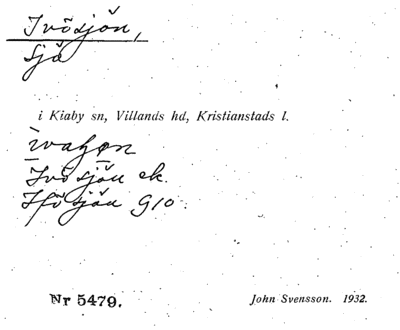 Ivösjön,
sjö
i Kiaby sn, Villands hd, Kristianstads l.
Ivösjön ek.
Ifösjön G10
Nr 5479.
John Svensson. 1932.